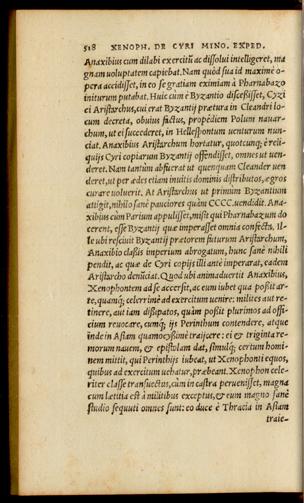 518 XENOPH. DE CYRI MINO. EXPED.
Anaxibius cum dilabi exercitũ ac dissolui intelligeret, ma
gnam voluptatem capiebat. Nam quòd sua id maximè o-
pera accidisset, in eo se gratiam eximiam à Pharnabazo
initurum putabat. Huic cùm è Byzantio discessisset, Cyzi
ci Aristarchus, cui erat Byzantij præfectura in Cleandri lo-
cum decreta, obuius factus, propediem Polum nauar-
chum, ut ei succederet, in Hellespontum uenturum nun-
ciat. Anaxibius Aristarchum hortatur, quotcunq; è reli-
quijs Cyri copiarum Byzantij offendisset, omnes ut uen-
deret. Nam tantùm abfuerat ut quenquam Cleander uen
deret, ut per ædes etiam inuitis dominis distributos, ægros
curare uoluerit. At Aristarchus ut primùm Byzantium
attigit, nihilo sanè pauciores quàm CCCC. uendidit. Ana-
xibius cùm Parium appulisset, misit qui Pharnabazum do
cerent, esse Byzantij quæ imperasset omnia confecta. Il-
le ubi resciuit Byzantij prætorem futurum Aristarchum,
Anaxibio classis imperium abrogatum, hunc sanè nihili
pendit, ac quæ de Cyri copijs illi antè imperarat, eadem
Aristarcho denũciat. Quod ubi animaduertit Anaxibius,
Xenophontem ad se accersit, ac eum iubet qua possit ar-
te, quamq; celerrimè ad exercitum uenire: milites aut re-
tinere, aut iam dissipatos, quàm possit plurimos ad offi-
cium reuocare, cumq; ijs Perinthum contendere, atque
inde in Asiam quamocyssimè traijcere: ei & triginta re-
morum nauem, & epistolam dat, simulq; certum homi-
nem mittit, qui Perinthijs iubeat, ut Xenophonti equos,
quibus ad exercitum uehatur, præbeant. Xenophon cele-
riter classe transuectus, cùm in castra peruenisset, magna
cum lætitia est à militibus exceptus, & eum magno sanè
studio sequuti omnes sunt: eo duce è Thracia in Asiam
traie-